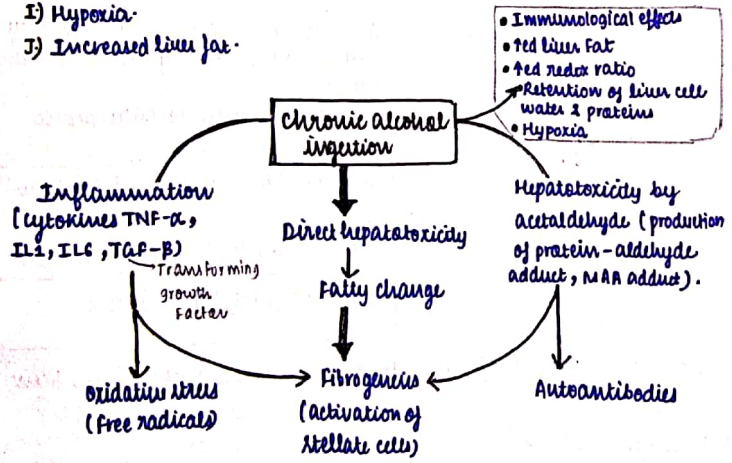 I:) Hypoxia.
J:) Increased liver fat.
• Immunological effects
• ↑ed liver Fat
• ↑ed redox ratio
• Retention of liver cell
water & proteins
• Hypoxia
Chronic alcohol
ingestion
Inflammation
(cytokines TNF-α,
IL1, IL6, TGF-β)
Transforming
growth
Factor
Direct hepatotoxicity
Fatty change
Hepatotoxicity by
acetaldehyde (production
of protein-aldehyde
adduct, MAA adduct).
Oxidative stress
(Free radicals)
Fibrogenesis
(activation of
stellate cells)
Autoantibodies